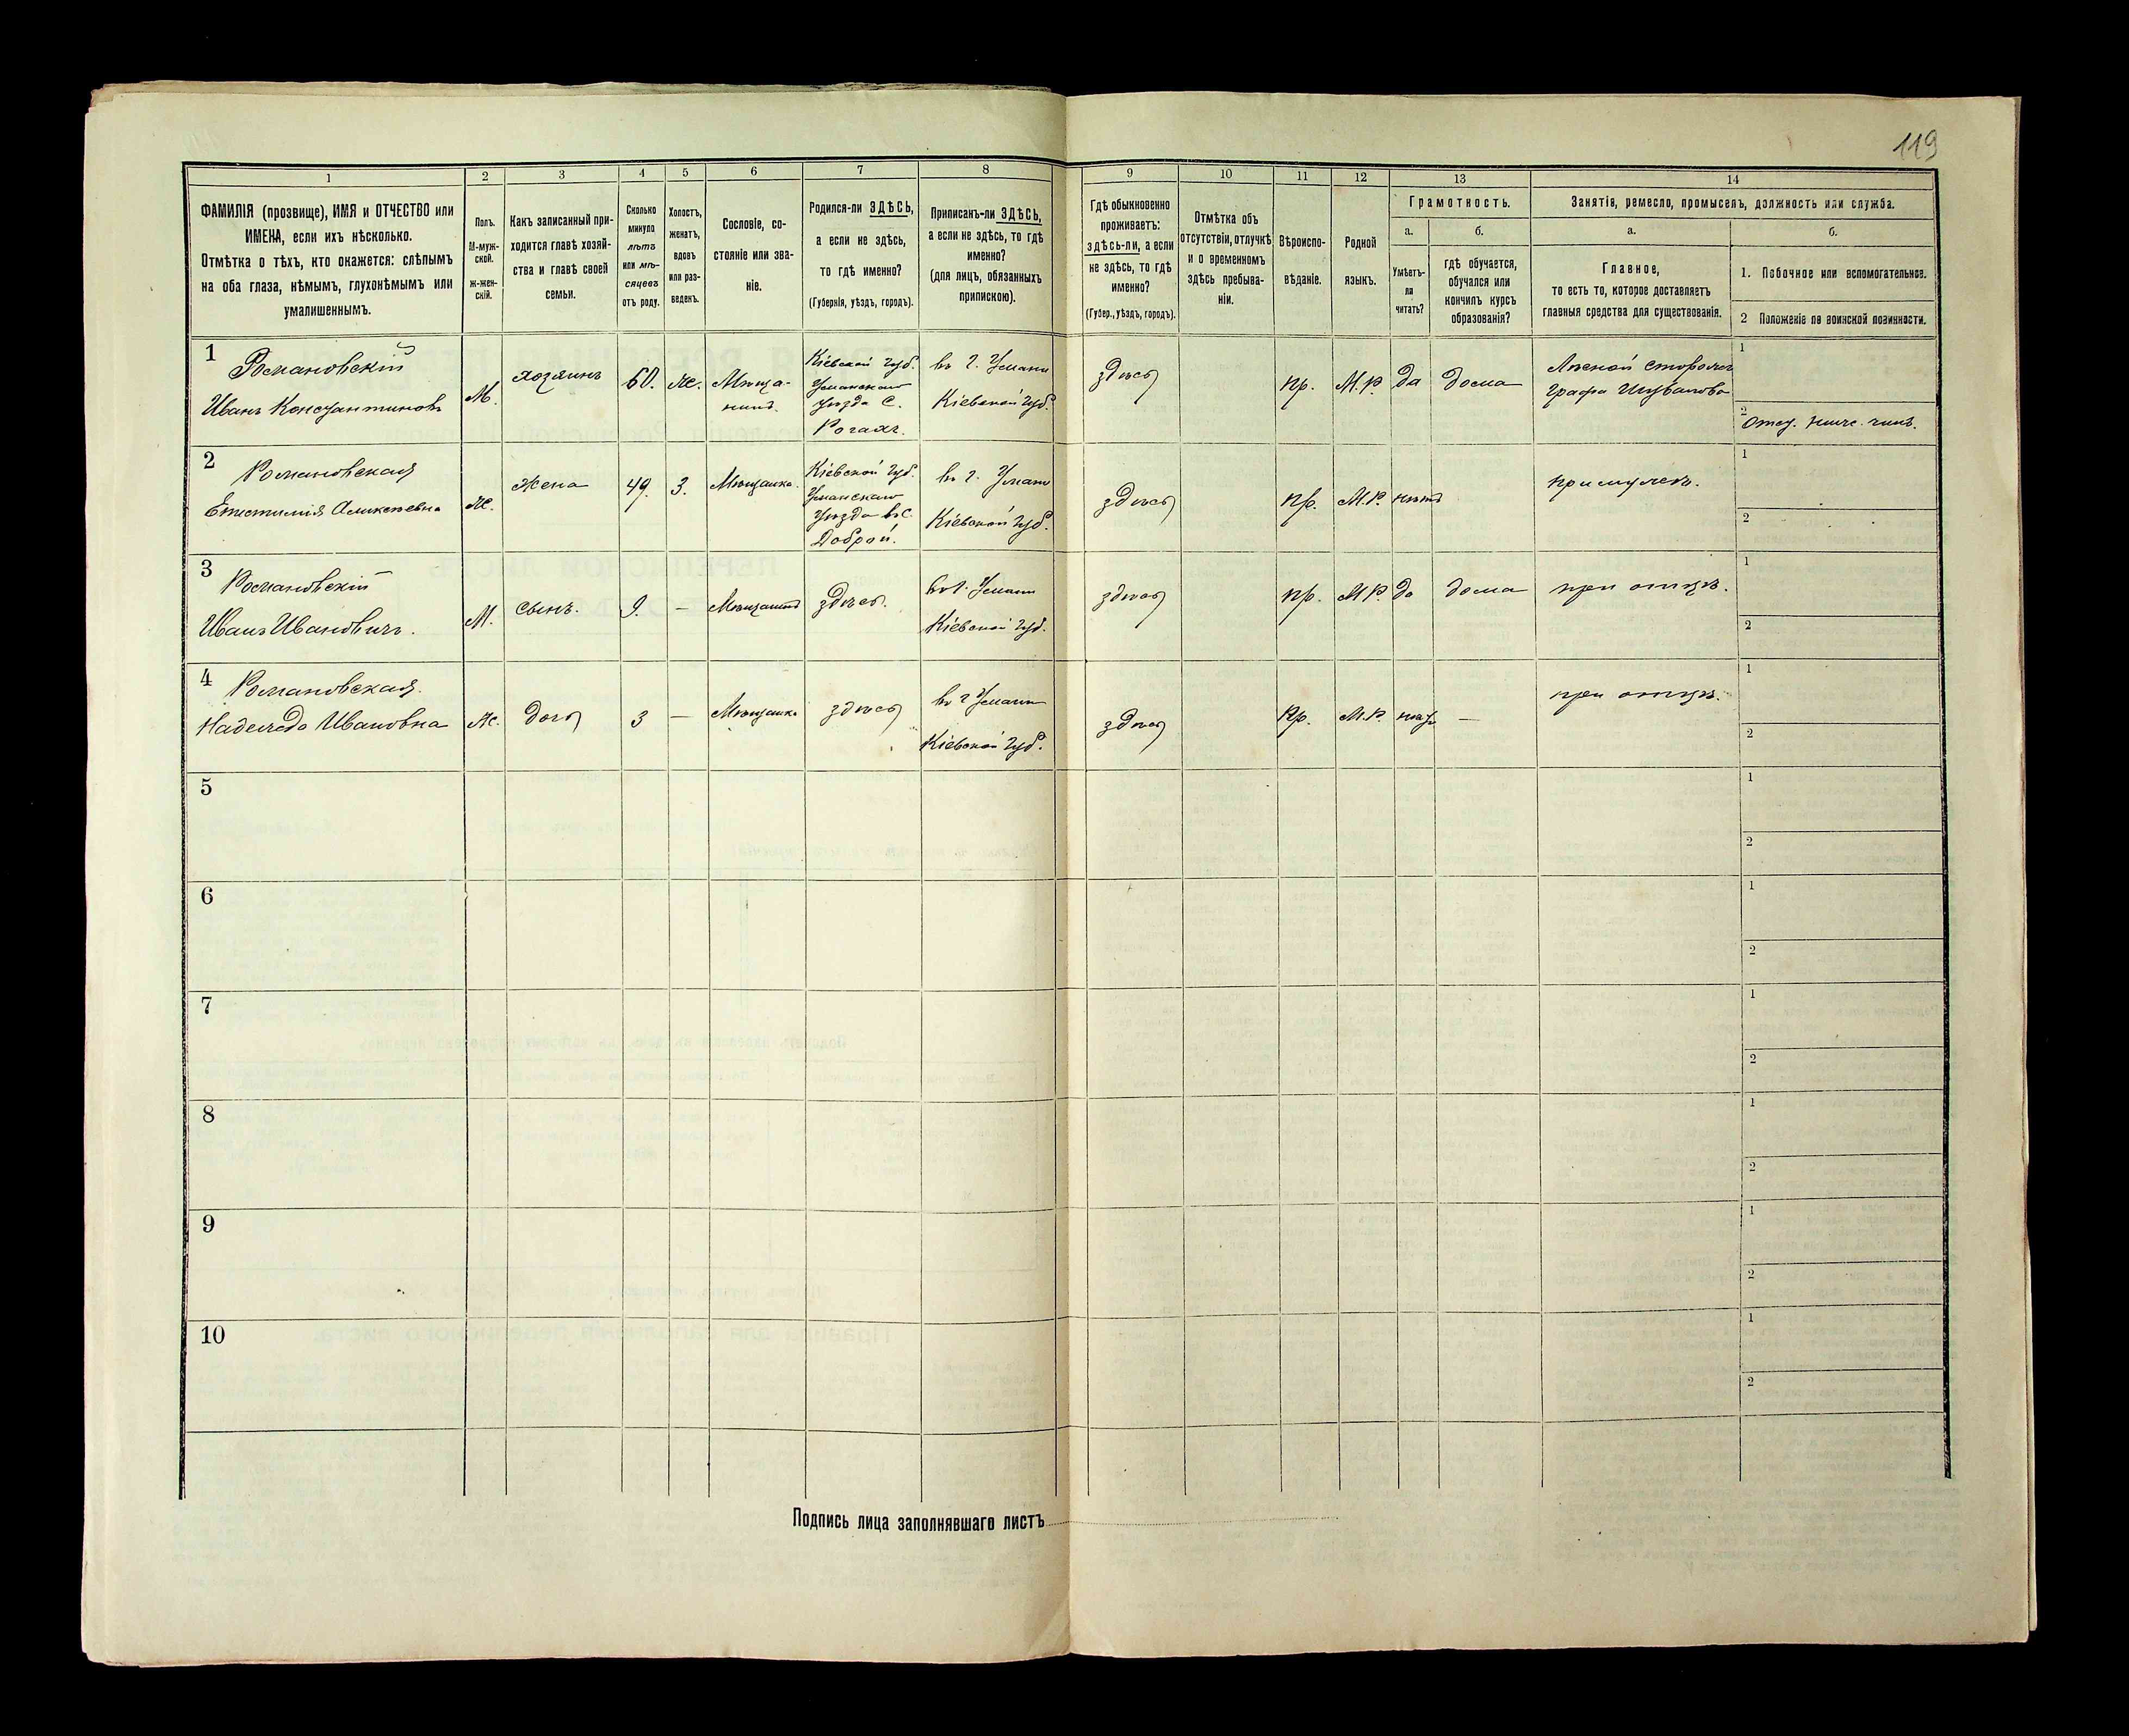 119
1
2
3
4
5
6
7
8
9
10
11
12
13
14
ФАМИЛІЯ (прозвище), ИМЯ и ОТЧЕСТВО или
ИМЕНА, если ихъ нѣсколько.
Отмѣтка о тѣхъ, кто окажется: слѣпымъ
на оба глаза, нѣмымъ, глухонѣмымъ или
умалишеннымъ.
Полъ.
М-муж-
ской.
ж-жен-
скій.
Какъ записанный при-
ходится главѣ хозяй-
ства и главѣ своей
семьи.
Сколько
минуло
лѣтъ
или мѣ-
сяцевъ
отъ роду.
Холостъ,
женатъ,
вдовъ
или раз-
веденъ.
Сословіе, со-
стояніе или зва-
ніе.
Родился-ли ЗДѢСЬ,
а если не здѣсь,
то гдѣ именно?
(Губернія, уѣздъ, городъ).
Приписанъ-ли ЗДѢСЬ,
а если не здѣсь, то гдѣ
именно?
(для лицъ, обязанныхъ
припискою).
Гдѣ обыкновенно
проживаетъ:
здѣсь-ли, а если
не здѣсь, то гдѣ
именно?
(Губер., уѣздъ, городъ).
Отмѣтка объ
отсутствіи, отлучкѣ
и о временномъ
здѣсь пребыва-
ніи.
Вѣроиспо-
вѣданіе.
Родной
языкъ.
Грамотность.
а.
Умѣетъ-
ли
читать?
б.
гдѣ обучается,
обучался или
кончилъ курсъ
образованія?
Занятія, ремесло, промыселъ, должность или служба.
а.
Главное,
то есть то, которое доставляетъ
главныя средства для существованія.
б.
1. Побочное или вспомогательное.
2 Положеніе по воинской повинности.
1
Романовскій
Иванъ Константиновъ
М.
хозяинъ
60.
же.
Мѣща-
нинъ.
Кіевской губ.
Уманскаго
уѣзда с.
Рогахъ.
въ г. Умани
Кіевской губ.
здѣсь
пр.
М.Р.
да
дома
Лѣсной сторожъ
графа Шувалова
1
2
отст. нижн. чинъ.
2
Романовская
Алексѣевна
Ж.
жена
49.
З.
Мѣщанка.
Кіевской губ.
Уманскаго
уѣзда въ с.
Доброй.
въ г. Умани
Кіевской губ.
здѣсь
пр.
М.Р.
нѣтъ
при мужѣ.
1
2
3
Романовскій
Иванъ Ивановичъ.
М.
сынъ.
9.
—
Мѣщанинъ
здѣсь.
въ г. Умани
Кіевской губ.
здѣсь
пр.
М.Р.
да
дома
при отцѣ.
1
2
4
Романовская.
Надежда Ивановна
Ж.
дочь
3
—
Мѣщанка
здѣсь
въ г Умани
Кіевской губ.
здѣсь
пр.
М.Р.
нѣтъ
—
при отцѣ.
1
2
5
1
2
6
1
2
7
1
2
8
1
2
9
1
2
10
1
2
Подпись лица заполнявшаго листъ